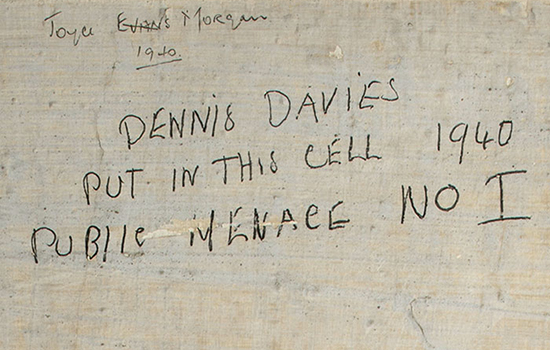 Joyce Evans Morgan
1940.
DENNIS DAVIES
PUT IN THIS CELL 1940
PUBlIc MENACE NO I